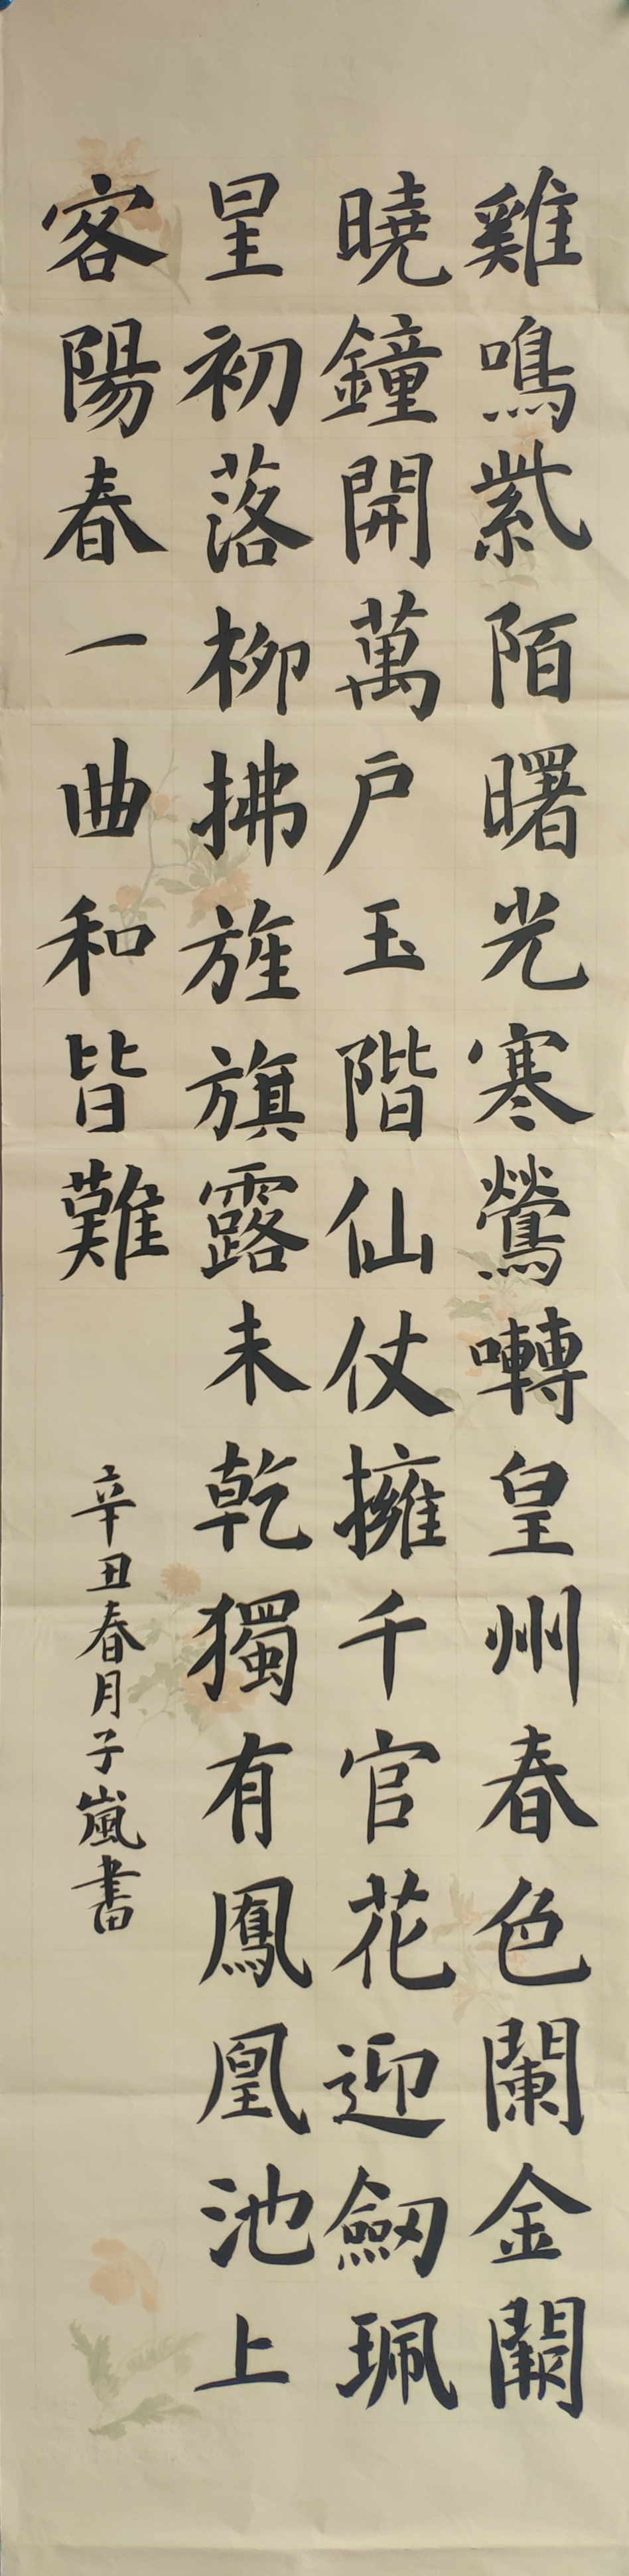 雞鳴紫陌曙光寒鶯囀皇州春色闌金闕
曉鐘開萬戶玉階仙仗擁千官花迎劒珮
星初落柳拂旌旗露未乾獨有鳳凰池上
客陽春一曲和皆難
辛丑春月子嵐書